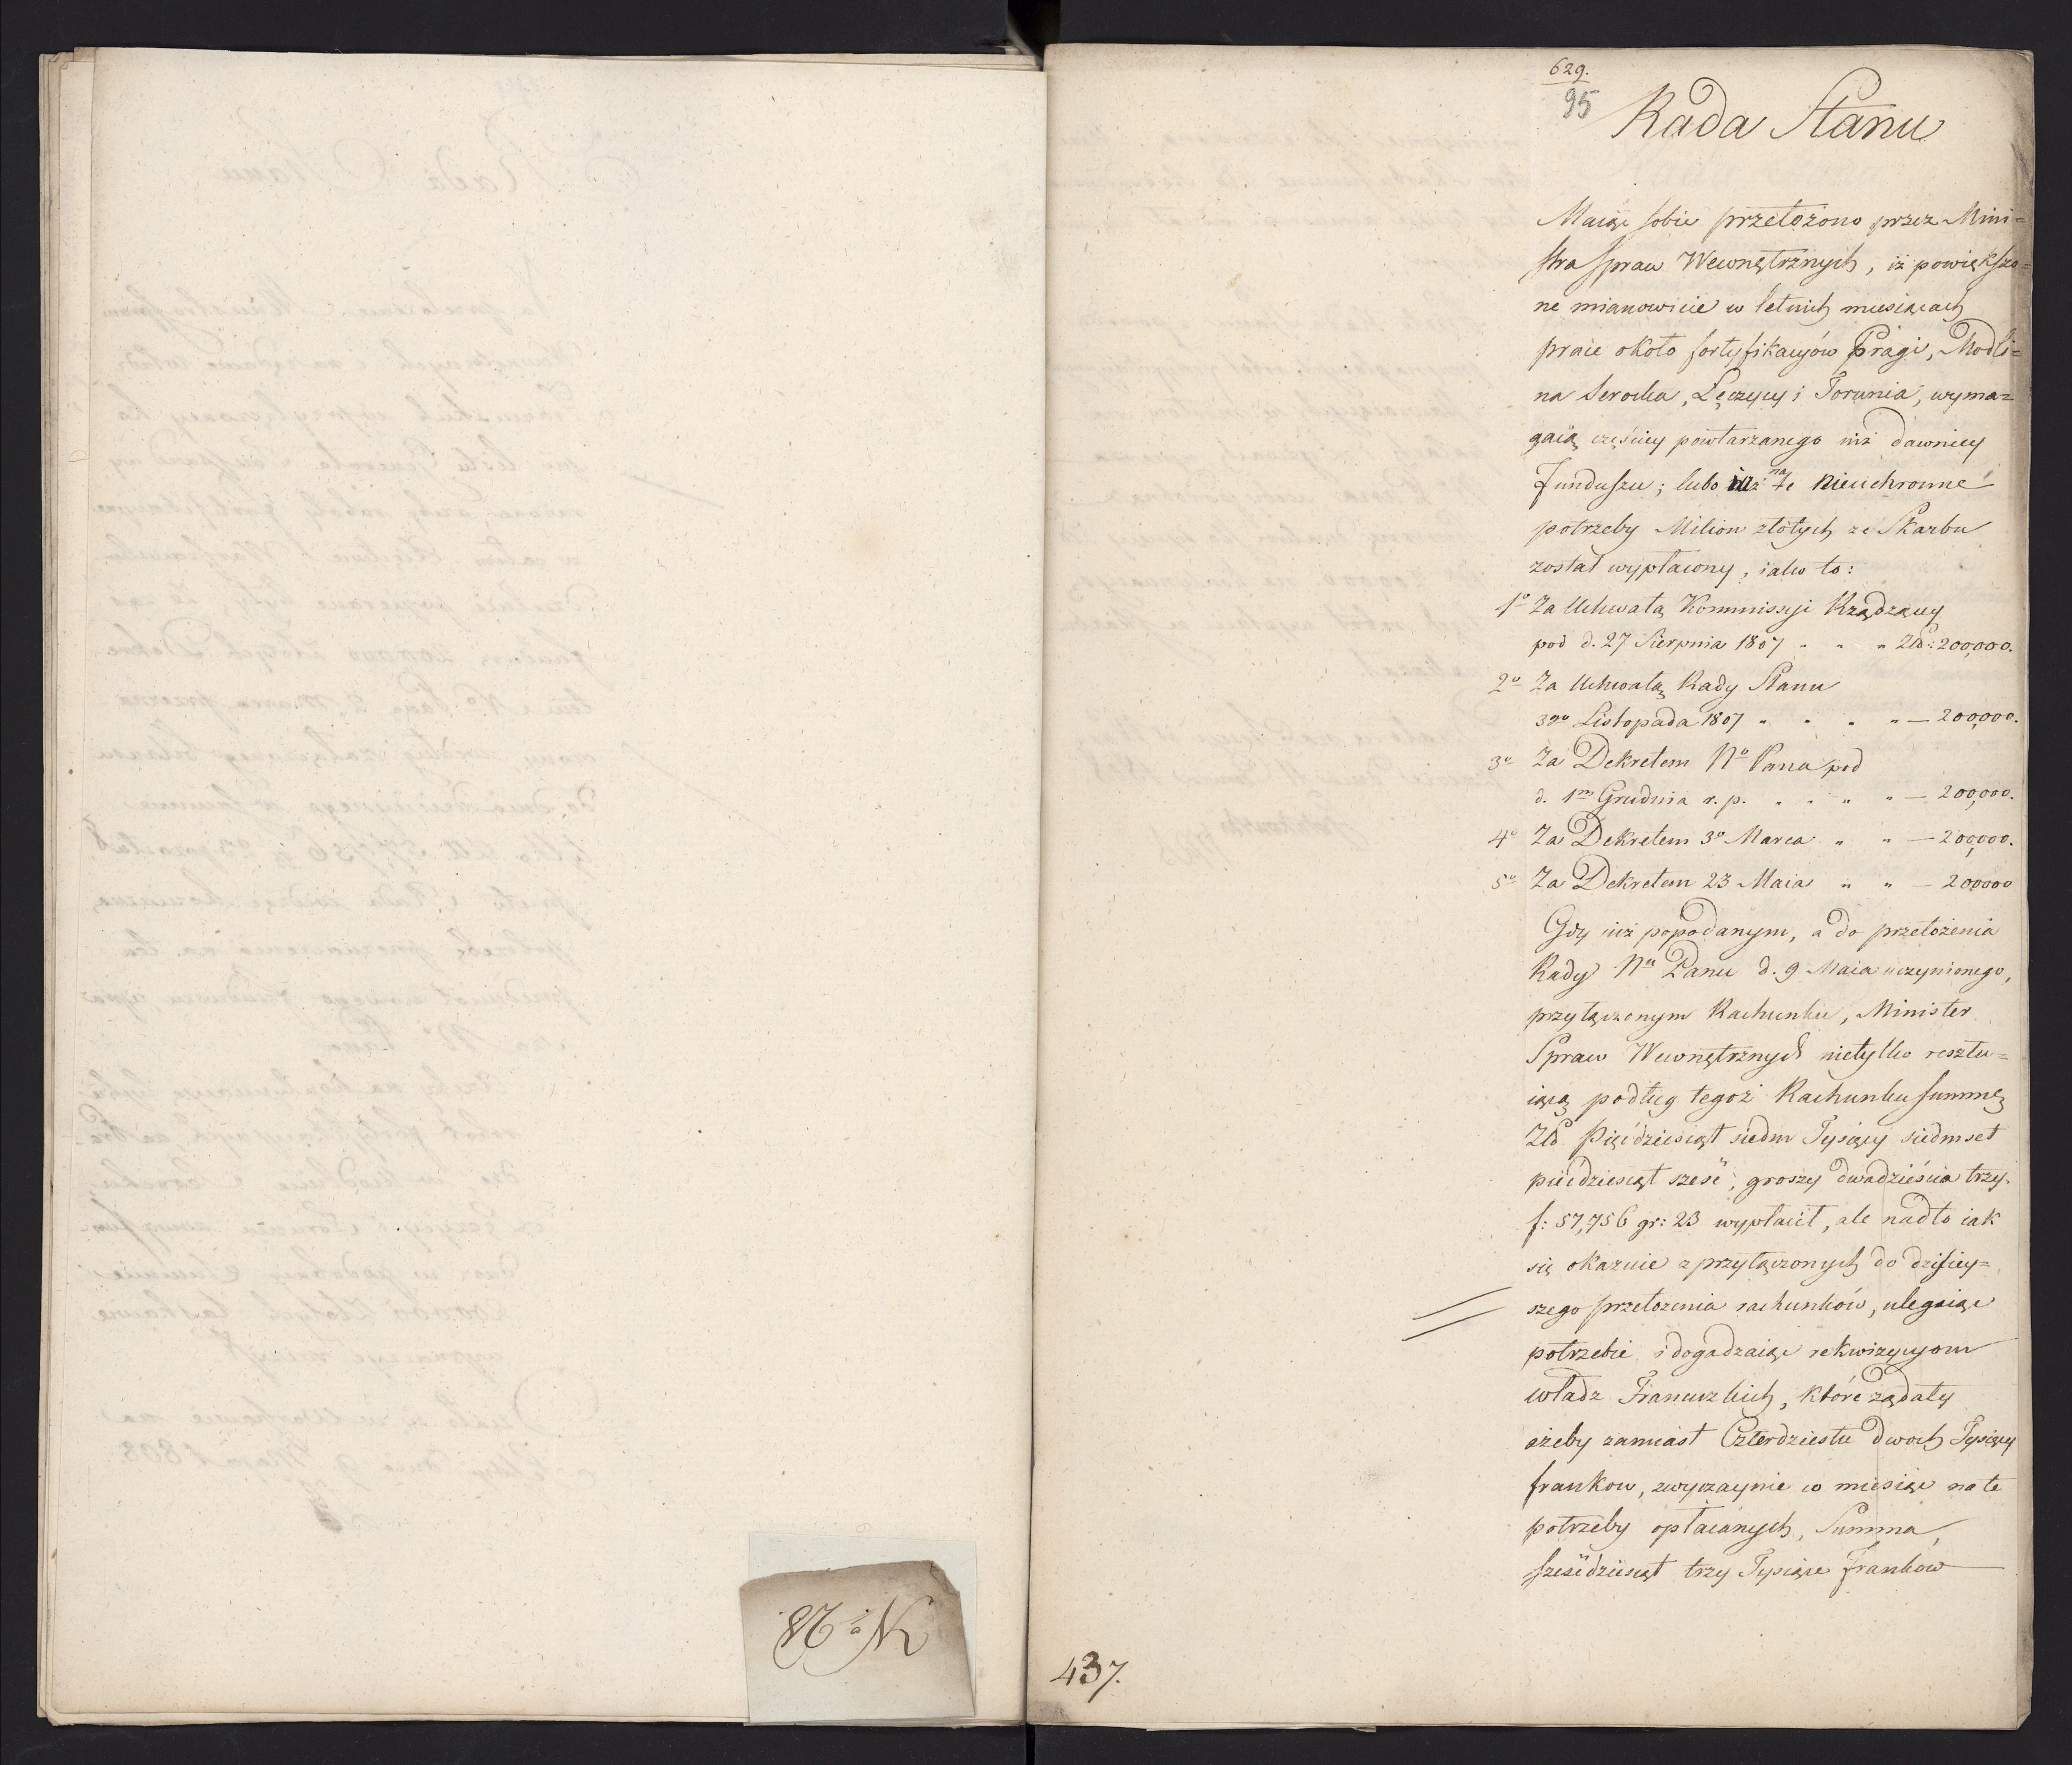 629.
95
Rada Stanu
Maiąc sobie przełożono przez Mini=
stra Spraw Wewnętrznych, iż powiększo=
ne mianowicie w letnich miesiącach
prace około fortyfikacyów Pragi, Modli=
na Serocka, Łęczycy i Torunia, wyma=
gaią częściey powtarzanego niż dawniey
Funduszu; lubo iuż na te nieuchronne
potrzeby Milion złotych ze Skarbu
został wypłacony, iako to:
1o Za Uchwałą Kommissyi Rządzącey
pod d. 27 Sierpnia 1807 " " " Złp: 200,000.
2o Za Uchwałą Rady Stanu
Listopada 1807 " " " " — 200,000.
3o Za Dekretem No Pana pod
d. 1m Grudnia r. p. " " " " — 200,000.
4o Za Dekretem 3o Marca " " — 200,000.
5o Za Dekretem 23 Maia " " — 200000
Gdy iuż popodanym, a do przełożenia
Rady Nu Panu d. 9 Maia uczynionego,
przyłączonym Rachunku, Minister
Spraw Wewnętrznych nietylko resztu=
iącą podług tegoż Rachunku summę
Złp. Pięćdziesiąt siedm Tysięcy siedmset
pięćdziesiąt sześć, groszy dwadzieścia trzy.
f: 57,756 gr: 23 wypłacił, ale nadto iak
się okazuie z przyłączonych do dzisiey=
szego przełożenia rachunków, ulegaiąc
potrzebie i dogadzaiąc rekwizycyom
władz Francuzkich, które żądały
ażeby zamiast Czterdziestu dwoch Tysięcy
frankow, zwyczaynie co miesiąc na te
potrzeby opłacanych, Summa,
sześćdziesiąt trzy Tysiące Franków
437.
No 28